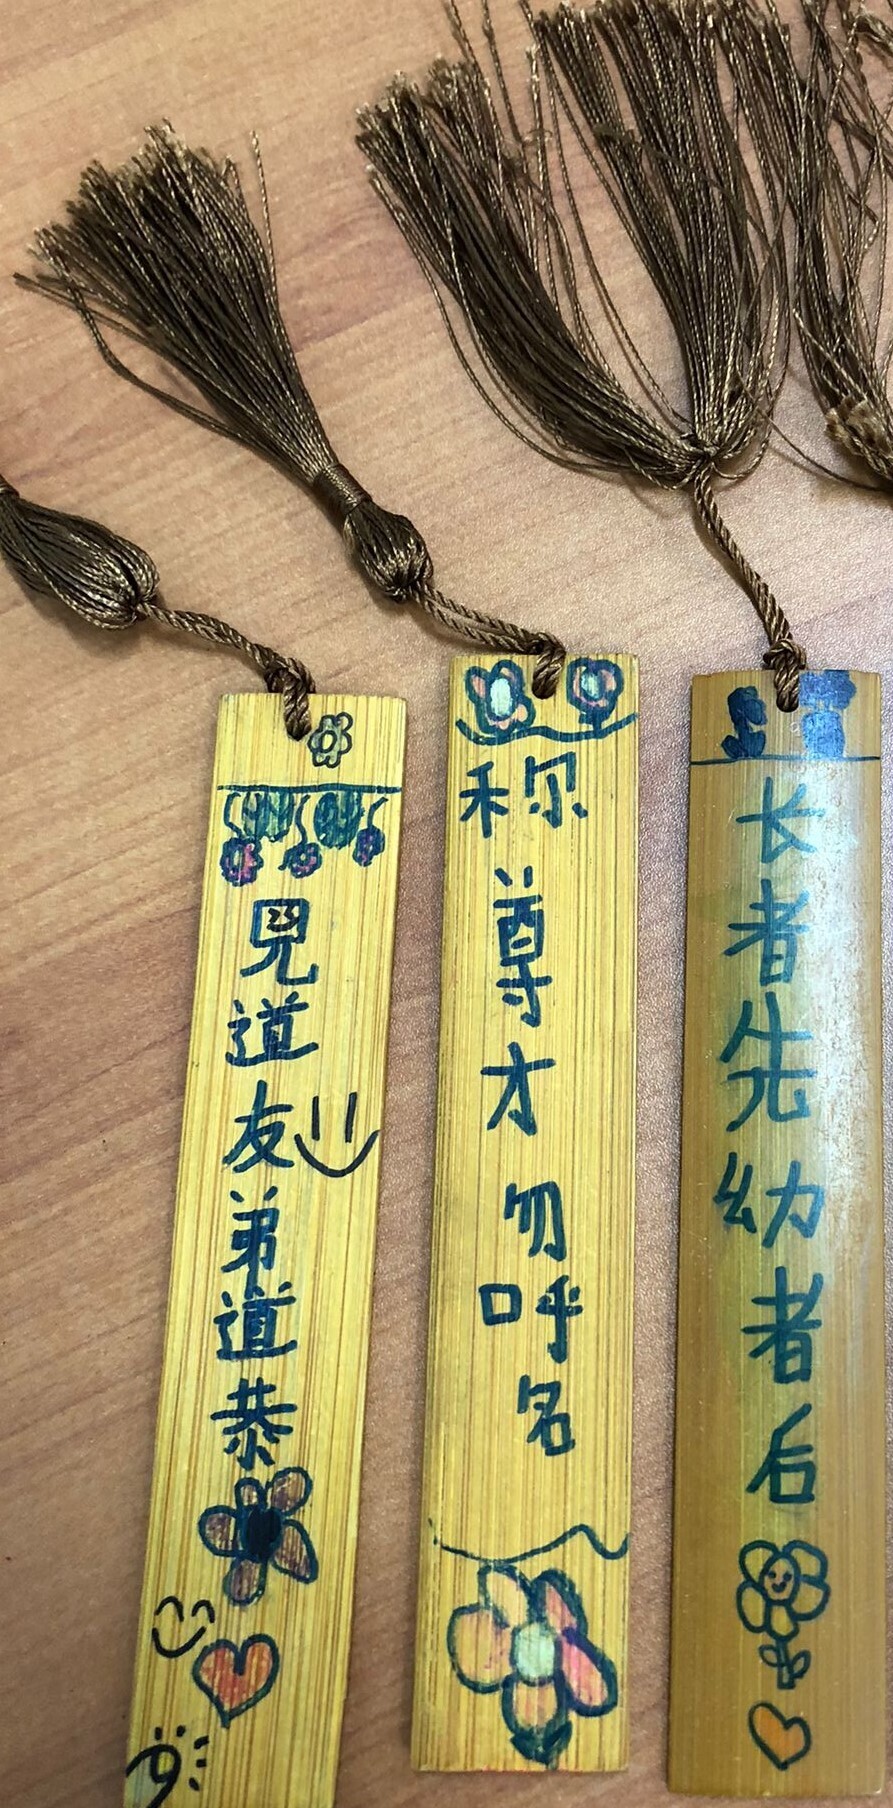 兄道友弟道恭
称尊才勿呼名
长者先幼者后